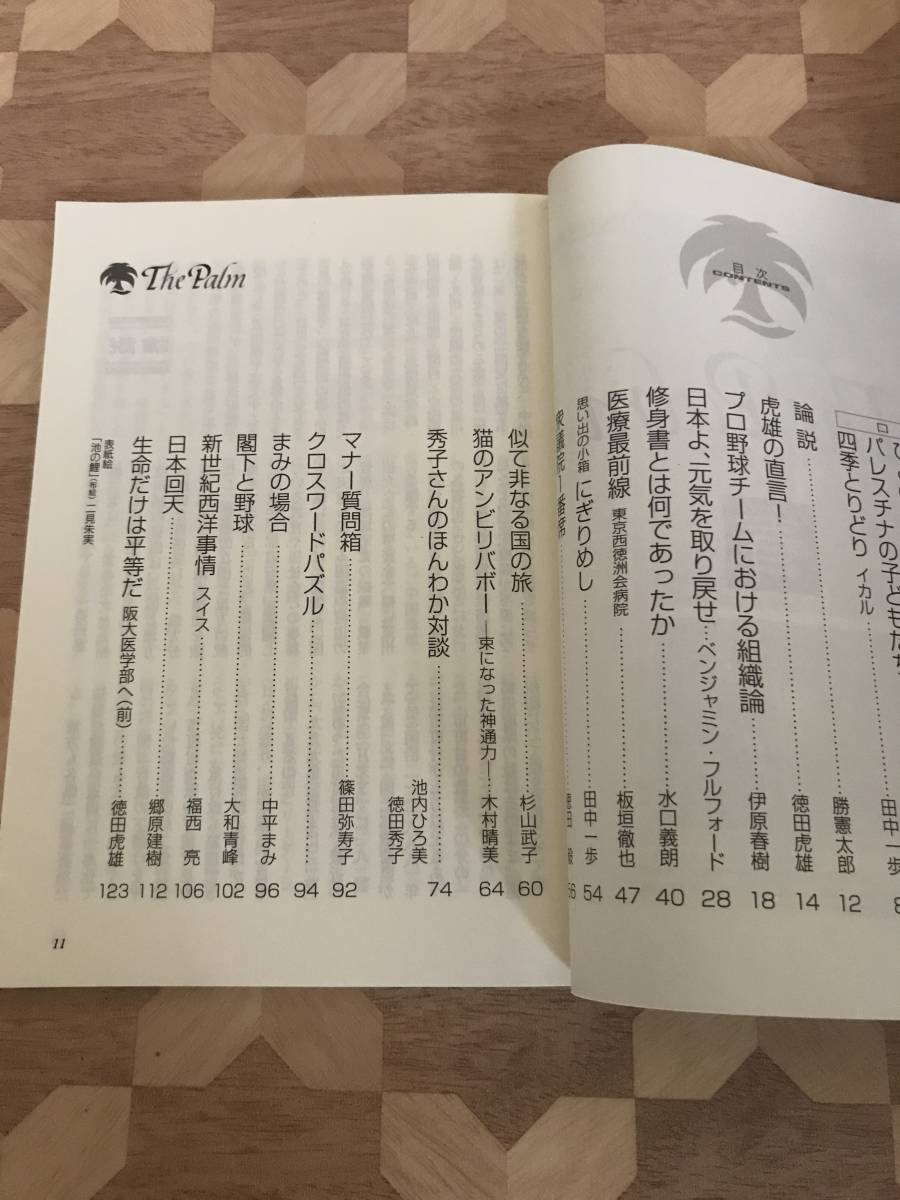 目次
CONTENTS
パレスチナの子どもたち
田中一歩
四季とりどり イカル……勝憲太郎 12
論説……徳田虎雄 14
虎雄の直言！
プロ野球チームにおける組織論……伊原春樹 18
日本よ、元気を取り戻せ…ベンジャミン・フルフォード 28
修身書とは何であったか……水口義朗 40
医療最前線 東京西徳洲会病院……板垣徹也 47
思い出の小箱 にぎりめし……田中一歩 54
The Palm
似て非なる国の旅……杉山武子 60
猫のアンビリバボー―束になった神通力―木村晴美 64
秀子さんのほんわか対談……池内ひろ美 徳田秀子 74
マナー質問箱……篠田弥寿子 92
クロスワードパズル……94
まみの場合……中平まみ 96
閣下と野球……大和青峰 102
新世紀西洋事情 スイス……福西 亮 106
日本回天……郷原建樹 112
生命だけは平等だ 阪大医学部へ（前）……徳田虎雄 123
表紙絵
「池の鯉」（布絵）二見朱実
11